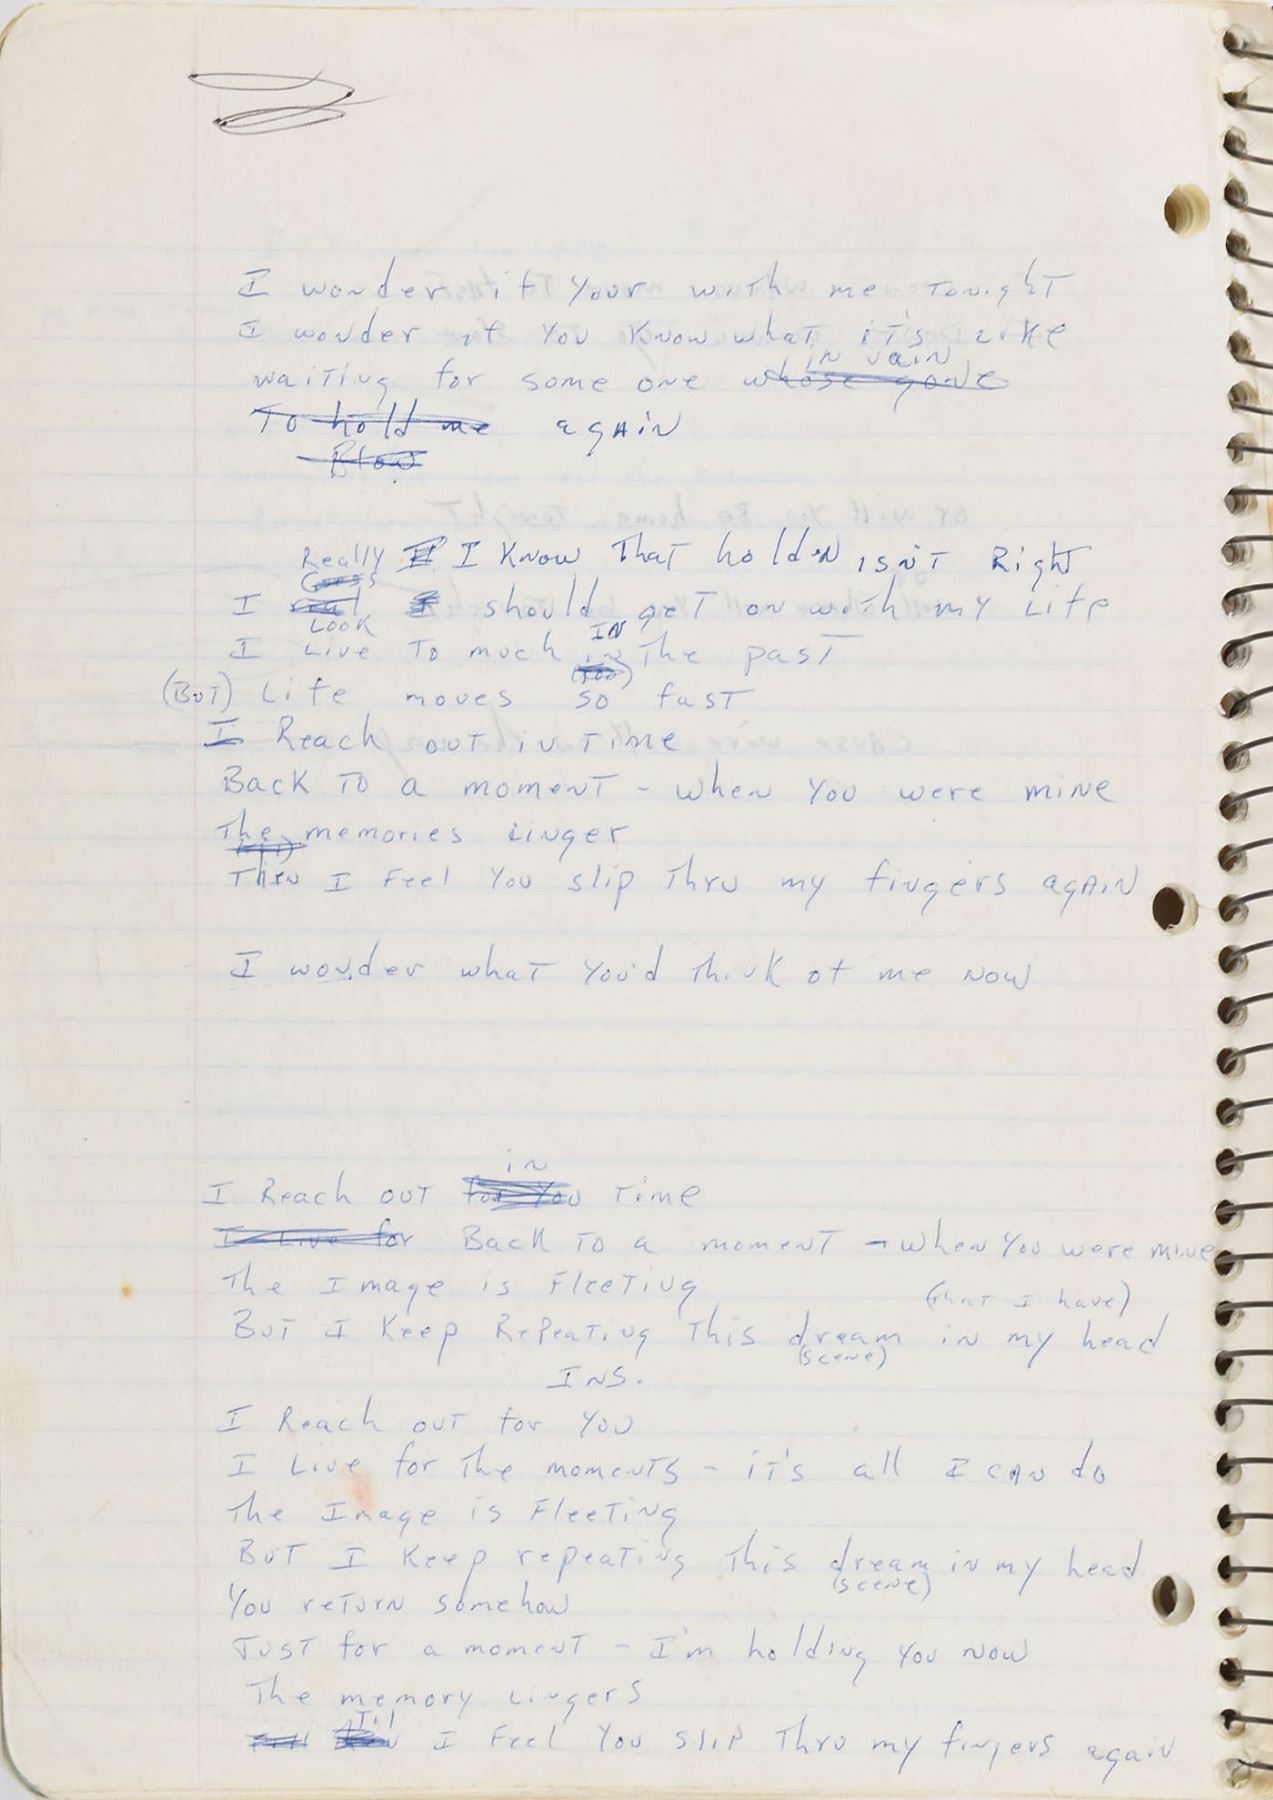 I wonder if Your with me Tonight
I wonder if You Know what it's Like
in vain
waiting for some one whose gone
To hold me again
Blow
Really I Know That holdN isn't Right
Guess
I should get on with my Life
Look
IN
I Live To much in The past
(But) Life moves so fast
I Reach out in Time
Back To a moment - when You were mine
The memories Linger
Then I Feel You slip Thru my fingers again
I wonder what You'd Think of me now
in
I Reach out for You Time
I Live for Back To a moment - when You were mine
The Image is Fleeting
(that I have)
But I Keep Repeating This dream in my head
(scene)
INS.
I Reach out for You
I Live for The moments - it's all I can do
The Image is Fleeting
But I Keep repeating This dream in my head
(scene)
You return somehow
Just for a moment - I'm holding You now
The memory Lingers
Til
I Feel You slip Thru my fingers again